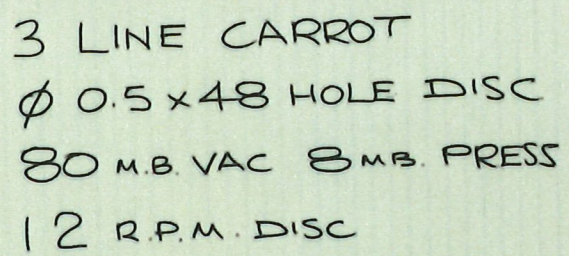 3 LINE CARROT
Ø 0.5 x 48 HOLE DISC
80 M.B. VAC 8 MB. PRESS
12 R.P.M. DISC